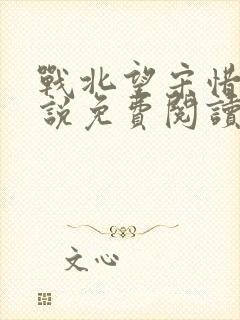 戰北望宋惜
說免費閱讀
文心